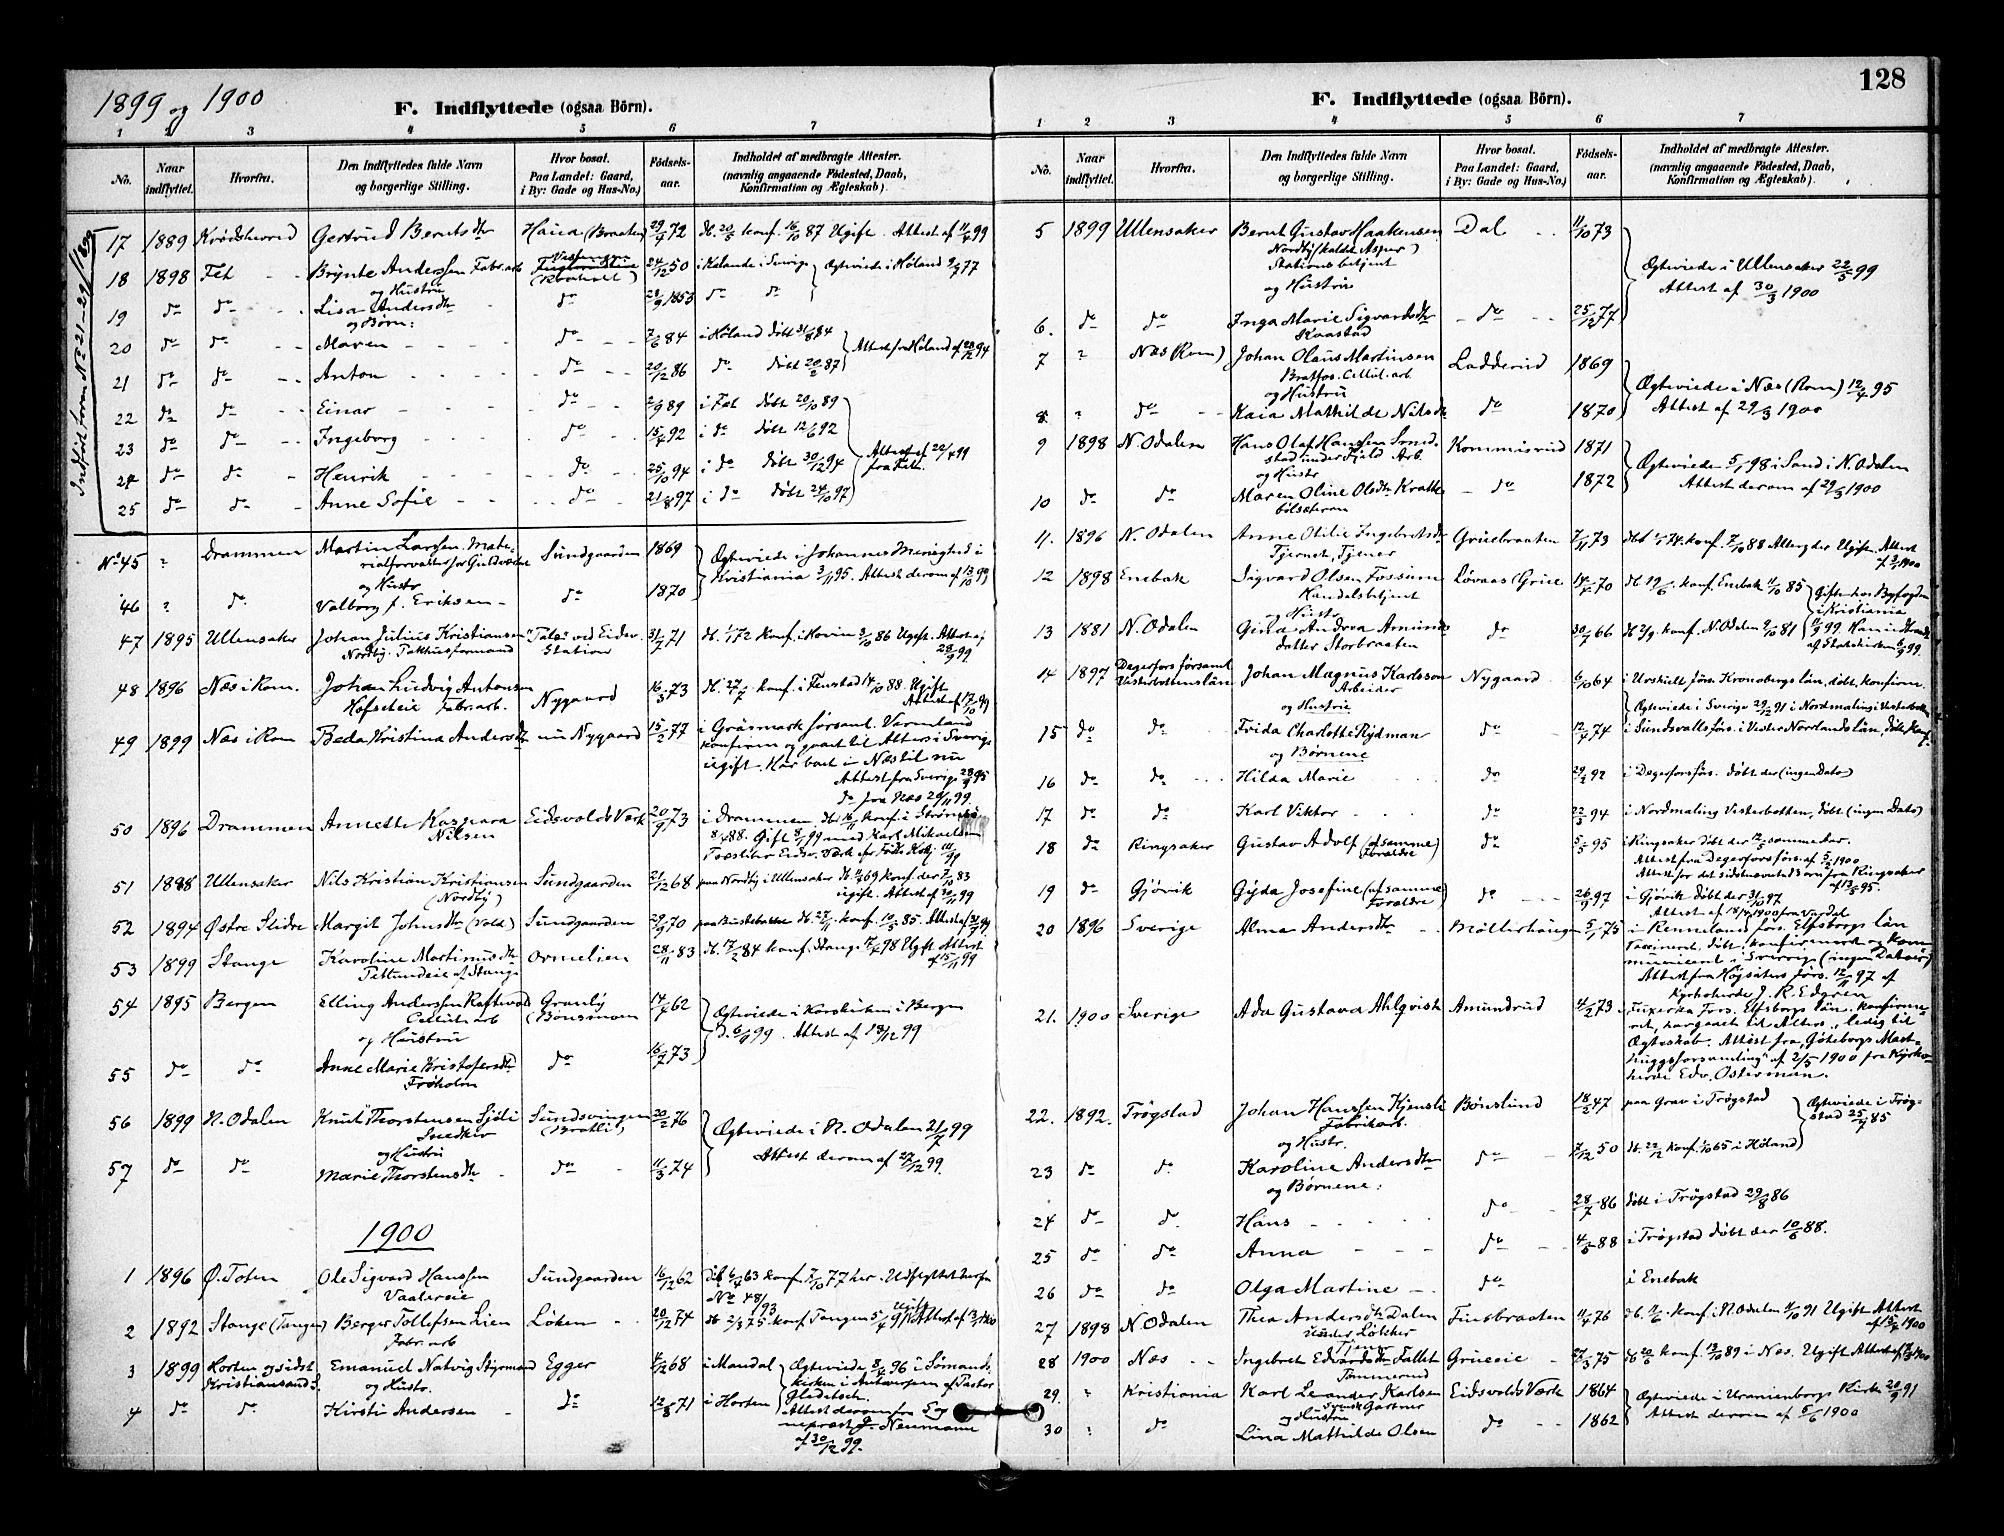 1899 og 1900
F. Indflyttede (ogsaa Börn).
1 2 3 4 5 6 7
No. Naar indflyttet. Hvorfra. Den Indflyttedes fulde Navn og borgerlige Stilling. Hvor bosat. Paa Landet: Gaard, i By: Gade og Hus-No.) Födsels-aar. Indholdet af medbragte Attester. (navnlig angaaende Födested, Daab, Konfirmation og Ægteskab).
17 1889 Krødsherred Gertrud Berntsdtr Haua (Braaten) 29/9 72 db. 20/5 konf. 16/10 87 Ugift. Attest af 11/4 99
18 1898 Fet Brynte Anderssen Fabr.arb (Raaholt) 24/12 50 i Sverige Ægteviede i Høland 9/4 77
og Hustru
19 do do Lisa Andersdtr do 29/9 1855 do do
og Børn:
20 do do Maren do 7/6 84 i Høland døbt 31/8 84
Attest fra Høland af 28/12 94
21 do do Anton do 20/12 86 do døbt 20/2 87
22 do do Einar do 2/9 89 i Fet døbt 20/10 89
23 do do Ingeborg do 15/4 92 i do døbt 12/6 92
Attest af 22/4 99
fra Fet.
24 do do Henrik do 25/10 94 i do døbt 30/12 94
25 do do Anne Sofie do 21/8 97 i do døbt 24/10 97
No 45 ? Drammen Martin Larssen. Mate-
rialforvalter for Guldværket Sundgaarden 1869 Ægteviede i Johannes Menighed i
og Hustr Kristiania 3/11 95. Attest derom af 13/10 99
46 ? do. Valborg f. Eriksen do 1870
47 1895 Ullensaker Johan Julius Kristiansen "Tale" ved Eidsv. 31/7 71 db. 1/1 72 konf. i Hovin 3/10 86 Ugift. Attest af
Nordby. Pakhusformand Station 28/9 99
48 1896 Næs i Rom. Johan Ludvig Antonsen Nygaard 16/3 73 db. 27/7 konf. i Fenstad 14/10 88. Ugift
Hofseteie Fabr.arb. Attest af 17/10 99
49 1899 Næs i Rom Beda Kristina Andersdtr nu Nygaard 15/2 77 i Gräsmark församl. Vermland
konfirm og gaaet til Alters i Sverige
ugift. Har boet i Næs til nu
Attest fra Sverige 28/9 95
do fra Næs 20/11 99.
50 1896 Drammen Annette Kaspara Eidsvolds Værk 20/9 73 i Drammen, db. 16/11 konf. i Strømsø
Nilsen 8/4 88. Gift 8/1 99 med Karl Mikaelsen
51 1888 Ullensaker Nils Kristian Kristiansen Sundgaarden 21/12 68 paa Nordby i Ullensaker db. 69 konf. der 7/10 83
(Nordby) ugift. Attest af 20/11 99
52 1894 Østre Slidre Margit Johnsdtr (Vold) Sundgaarden 29/9 70 db. 27/11 konf. 10/5 85. Attest af
53 1899 Stange Karoline Martinusdtr Ormelien 28/11 83 db. 17/2 84 konf. Stange 98 Ugift Attest
af 15/11 99
54 1895 Bergen Elling Anderssen Granly 14/4 62 Ægteviede i Korskirken i Bergen
Cellul.arb (Bønsmoen d. 6/9 99. Attest af 18/12 99
og Hustru
55 do do Anne Marie Kristofersdtr do 16/7 73
Frøholm
56 1899 N. Odalen Knut Thorstensen Sjøli Sundsvingen 20/2 76 Ægteviede i N. Odalen 21/7 99
Snedker (Bratli)
og Hustru Attest derom af 27/12 99.
57 do do Marie Thorstensdtr do 11/3 74
1900
1 1896 Ø. Toten Ole Sigvard Hanssen Sundgaarden 16/12 62 db. 6/4 63 konf. 7/10 77 her. Udflyttet herfra
Vaalereie No 48/93
2 1892 Stange (Tangen) Berger Tollefsen Lien Løken 20/12 74 db 2/3 75 konf Tangen 5/4 9 Ugift Attest af
Fabr.arb
3 1899 Horten og sidst Emanuel Natvig Styrmand Egger 4/2 68 i Mandal Ægteviede 8/2 96 i Sømands-
Kristiansand S. og Hustr. kirken i Antwerpen af Pastor
Gleditsch
4 do do Kirsti Andersen do 12/8 71 i Horten Attest derom fra Sog-
neprest J. Neumann
af 30/12 99.
F. Indflyttede (ogsaa Börn).
128
1 2 3 4 5 6 7
No. Naar indflyttet. Hvorfra. Den Indflyttedes fulde Navn og borgerlige Stilling. Hvor bosat. Paa Landet: Gaard, i By: Gade og Hus-No.) Födsels-aar. Indholdet af medbragte Attester. (navnlig angaaende Födested, Daab, Konfirmation og Ægteskab).
5 1899 Ullensaker Bernt Gustav Haakensen Dal 11/10 73
Stationsbetjent Ægteviede i Ullensaker 22/5 99
og Hustru Attest af 30/3 1900
6. do do Inga Marie Sigvardsdtr do 25/12 77
Kaastad
7 ? Næs (Rom) Johan Olaus Martinsen Ladderud 1869
Bratfos. Cellul. arb. Ægteviede i Næs (Rom) 12/4 95
og Hustru Attest af 29/3 1900
8 ? do Kaia Mathilde Nilsdtr do 1870
9 1898 N. Odalen Hans Olaf Hanssen Kommisrud 1871
Ægteviede 5/1 98 i Sand i N. Odalen
og Hustr Attest derom af 29/3 1900
10 do do Maren Oline Olsdtr do 1872
11. 1896 N. Odalen Anne Otilie Ingebretsdtr Gruebraaten 7/11 73 konf. 7/10 88 Ugift. Attest
Tjernet, Tjener
12 1898 Enebak Sigvard Olsen Fossum Løvaas (Grue 14/4 70 db 19/6 konf. Enebak 11/10 85 Gifte hos Byfogden
Handelsbetjent i Kristiania
og Hustr
13 1881 N. Odalen Gina Andrea Amunds do 30/7 66 db 2/9 konf. N. Odalen 9/10 81
datter Storbraaten af Statskirken
14 1897 Degerfors församl. Johan Magnus Karlsson Nygaard 6/10 64 i Urshult förs. Kronobergs län, döbt, konfirm.
Vesterbottens län Arbeider
og Hustrue Ægteviede i Sverige 29/12 91 i Nordmaling i Vesterbotten
15 do do Frida Charlotte Rydman do 12/4 74 i Sundsvalls förs. i Vester Norrlands län, döbt, konf.
og Børnene
16 do do Hilda Marie do 29/2 92 i Degerfors förs. døbt der (ingen Dato)
17 do do Karl Viktor do 22/3 94 i Nordmaling Vesterbotten, døbt (ingen Dato)
18 do Ringsaker Gustav Adolf (af samme Forældre) do 5/5 95 i Ringsaker døbt der 12/5 samme Aar.
Attest fra Degerfors förs. af 5/2 1900
19 do Gjøvik Gyda Josefine (af samme Forældre) do 26/9 97 i Gjøvik døbt der 31/10 97
Attest af 18/4 1900 fra Vardal
20 1896 Sverige Alma Andersdtr Møllerhaugen 5/1 75 i Rennelanda förs. Elfsborgs län
vaccineret, døbt, konfirmeret og kom-
municeret i Sverrig (ingen Datoer)
Attest fra Högsäters förs. 12/11 97 af
Kyrkoherde J. R. Edgren
21. 1900 Sverige Ada Gustava Ahlqvist Amundrud 4/2 73 i Fuxerna förs. Elfsborgs län. konfirme-
ret, har gaaet til Alters, ledig til
Ægteskab. Attest fra "Göteborgs Mast-
huggsforsamling" af 2/5 1900 fra Kyrko-
herde Edv. Osterman.
22. 1892. Trøgstad Johan Hanssen Kjensli Bønslund 18/5 47 paa Grav i Trøgstad Ægteviede i Trøg-
Fabrikarb. stad 25/7 85
og Hustr.
23 do do Karoline Andersdtr do 7/12 50 db. 22/12 konf. 1/10 65 i Høland
og Børnene:
24 do do Hans do 28/7 86 døbt i Trøgstad 29/8 86
25 do do Anna do 4/5 88 i Trøgstad døbt der 10/6 88.
26 do do Olga Martine do i Enebak
27 1898 N. Odalen Thea Andersdtr Dalen Finsbraaten 11/4 76 db. 7/6 konf. i N. Odalen 11/10 91 Ugift Attest
under Løbther Tjener
28 1900 Næs Ingebret Edvardsdtr Fallet Grueeie 27/3 75 db 20/6 konf. 13/10 89 i Næs. Ugift Attest af
Tømmerud
29. ? Kristiania Karl Leander Karlsen Eidsvolds Værk 1864 Ægteviede i Uranienborgs Kirke 20/9 91
svensk Gartner Attest derom af 5/6 1900
og Hustru
30 ? do Lina Mathilde Olsen do 1862